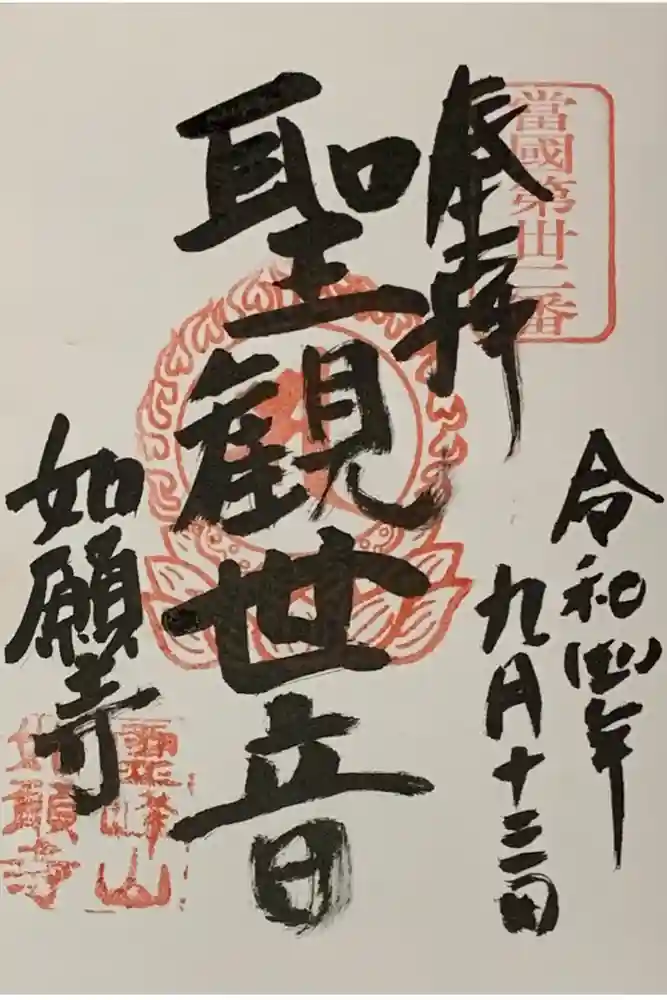 當國第丗二番
奉拝
令和四年
九月十三日
聖観世音
如願寺
霊峰山
如願寺